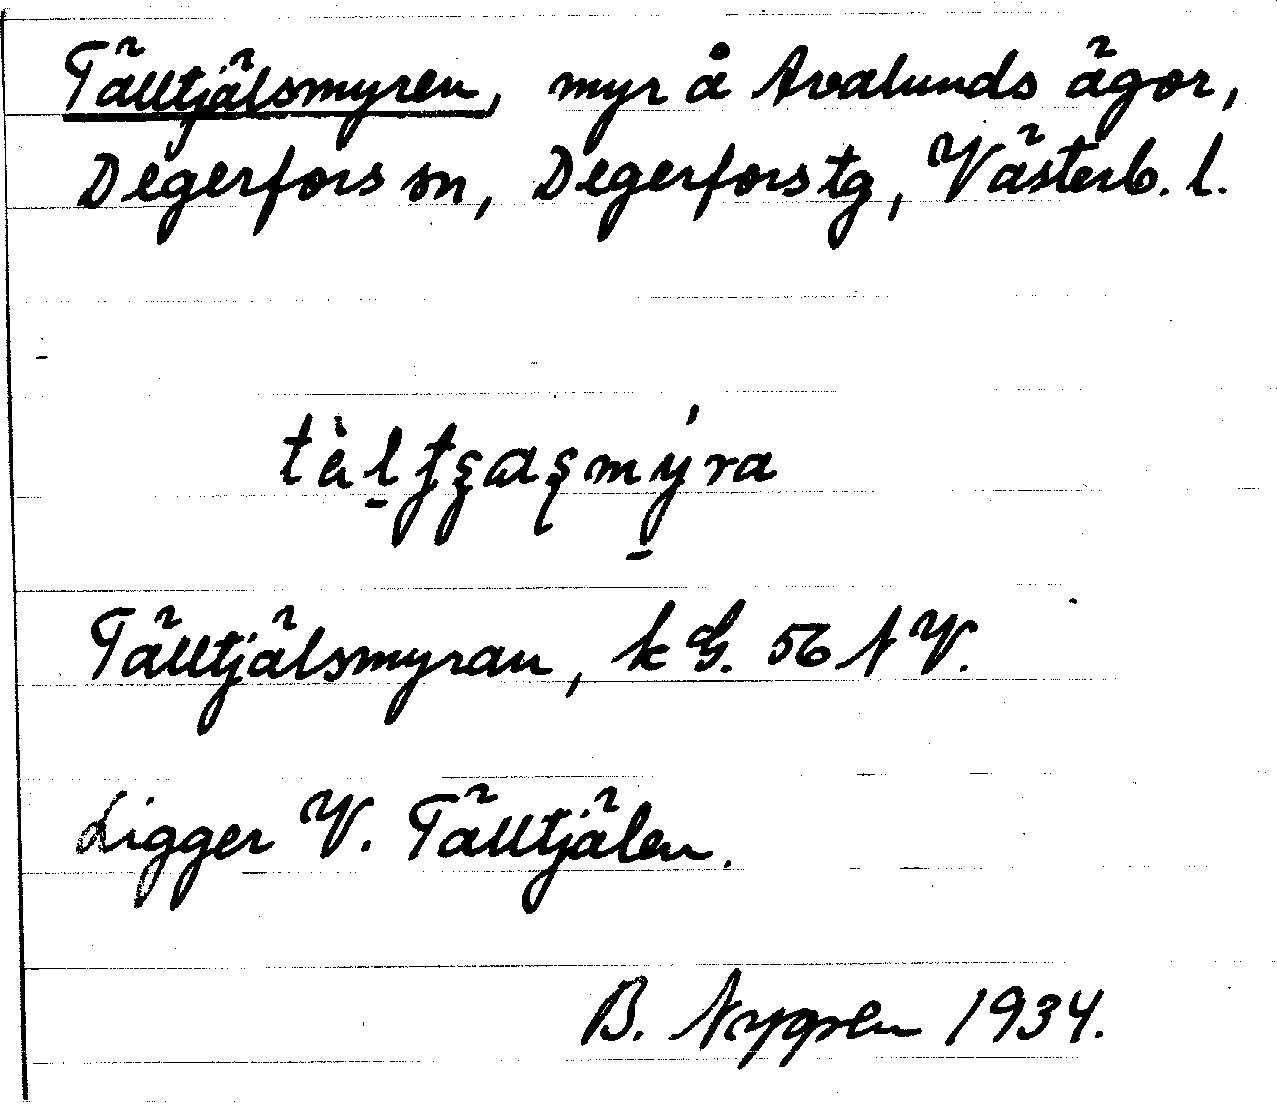 Tälltjälsmyren, myr å Avalunds ägor,
Degerfors sn, Degerfors tg, Västerb. l.
Tälltjälsmyran, k G. 56 NV.
Ligger V. Tälltjälen.
B. Nygren 1934.